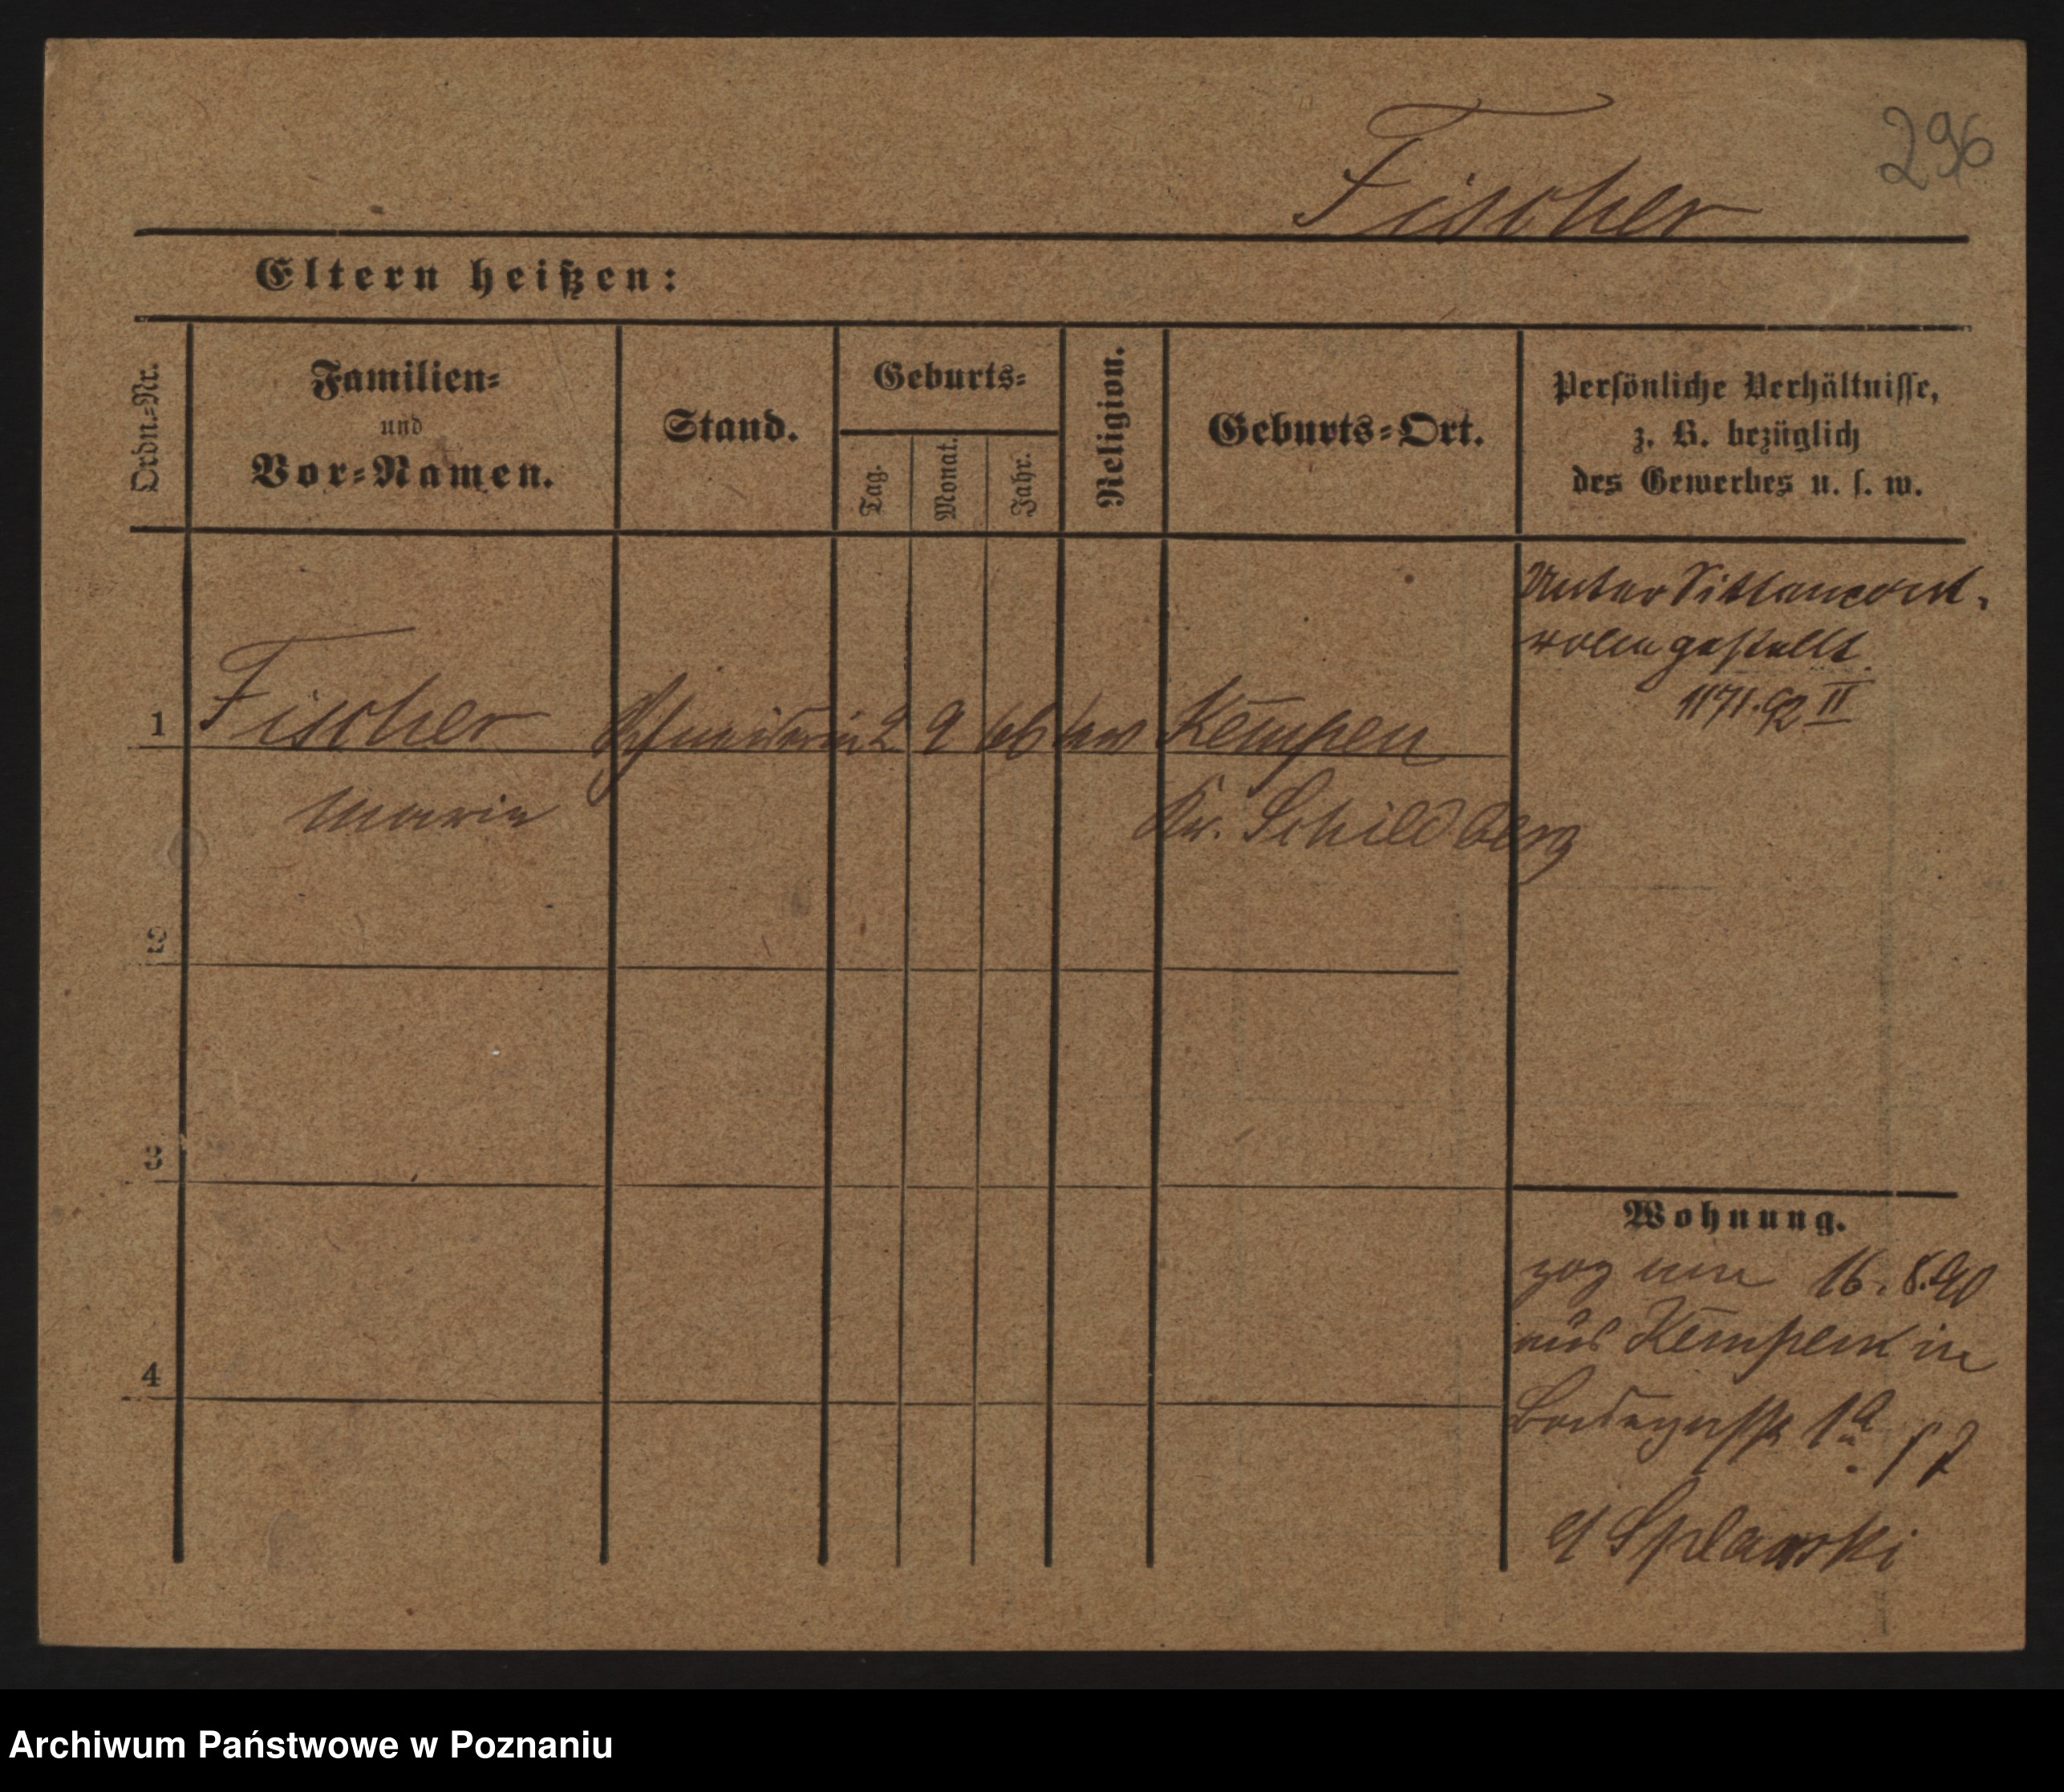 296
Fischer
Eltern heißen:
Ordn.=Nr.
Familien=
und
Vor=Namen.
Stand.
Geburts=
Tag.
Monat.
Jahr.
Religion.
Geburts=Ort.
Persönliche Verhältnisse,
z. B. bezüglich
des Gewerbes u. s. w.
Unter Sittencont,
rolle gestellt.
1171.92 II
1 Fischer Schneiderin 2 9 66 Kempen
Marie Kr. Schildberg
2
3
4
Wohnung.
zog am 16.8.90
aus Kempen in
1a
Splawski
Archiwum Państwowe w Poznaniu